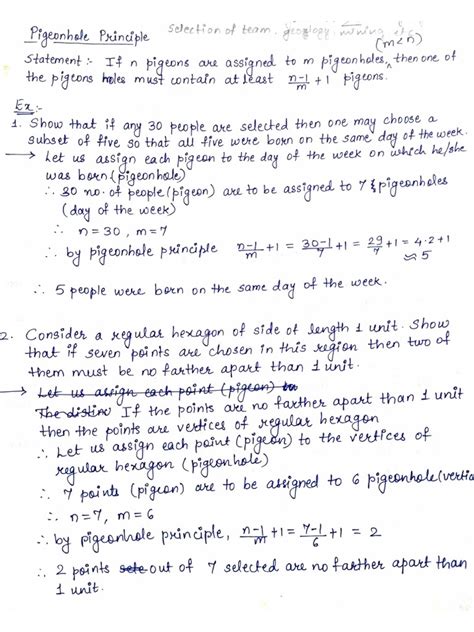 Pigeonhole Principle
Selection of team. geozology mining etc.
(m<n)
Statement :- If n pigeons are assigned to m pigeonholes, then one of
the pigeons holes must contain at least n-1/m + 1 pigeons.
Ex :-
1. Show that if any 30 people are selected then one may choose a
subset of five so that all five were born on the same day of the week.
→ Let us assign each pigeon to the day of the week on which he/she
was born (pigeonhole)
∴ 30 no. of people (pigeon) are to be assigned to 7 pigeonholes
(day of the week)
∴ n = 30, m = 7
∴ by pigeonhole principle n-1/m + 1 = 30-1/7 + 1 = 29/7 + 1 = 4.2 + 1
≈ 5
∴ 5 people were born on the same day of the week.
2. Consider a regular hexagon of side of length 1 unit. Show
that if seven points are chosen in this region then two of
them must be no farther apart than 1 unit.
→ Let us assign each point (pigeon) to
The distinc If the points are no farther apart than 1 unit
then the points are vertices of regular hexagon
∴ Let us assign each point (pigeon) to the vertices of
regular hexagon (pigeonhole)
∴ 7 points (pigeon) are to be assigned to 6 pigeonhole (vertic
∴ n = 7, m = 6
∴ by pigeonhole principle, n-1/m + 1 = 7-1/6 + 1 = 2
∴ 2 points out of 7 selected are no farther apart than
1 unit.